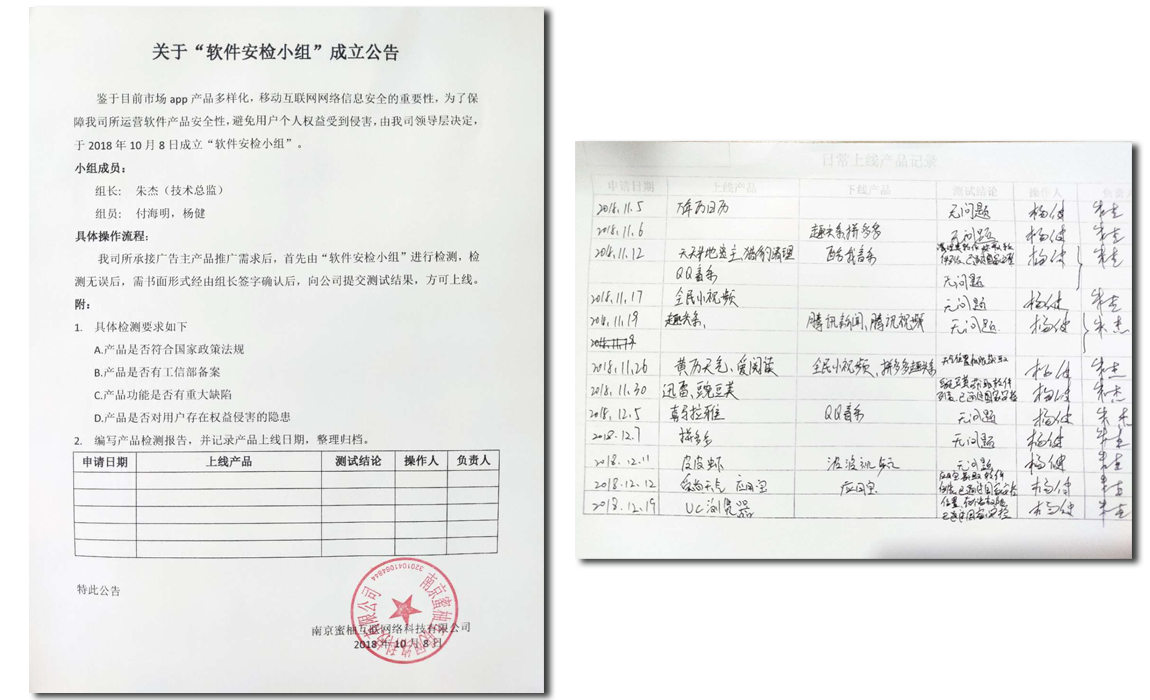 关于“软件安检小组”成立公告
鉴于目前市场 app 产品多样化，移动互联网网络信息安全的重要性，为了保
障我司所运营软件产品安全性，避免用户个人权益受到侵害，由我司领导层决定，
于 2018 年 10 月 8 日成立“软件安检小组”。
小组成员：
组长： 朱杰（技术总监）
组员： 付海明，杨健
具体操作流程：
我司所承接广告主产品推广需求后，首先由“软件安检小组”进行检测，检
测无误后，需书面形式经由组长签字确认后，向公司提交测试结果，方可上线。
附：
1. 具体检测要求如下
A.产品是否符合国家政策法规
B.产品是否有工信部备案
C.产品功能是否有重大缺陷
D.产品是否对用户存在权益侵害的隐患
2. 编写产品检测报告，并记录产品上线日期，整理归档。
申请日期 上线产品 测试结论 操作人 负责人
特此公告
南京蜜柚互联网络科技有限公司
2018 年 10 月 8 日
3201041004844
日常上线产品记录
申请日期 上线产品 下线产品 测试结论 操作人 负责人
2018.11.5 万年历日历 无问题 杨健 朱杰
2018.11.6 趣头条,拼多多 无问题 杨健 朱杰
2018.11.12 天天斗地主,猎豹清理 酷我音乐 杨健 朱杰
QQ音乐 无问题
2018.11.17 全民小视频 无问题 杨健 朱杰
2018.11.19 趣头条、 腾讯新闻、腾讯视频 无问题 杨健 朱杰
2018.11.26 黄历天气、爱阅读 全民小视频、拼多多趣头条 杨健 朱杰
2018.11.30 迅雷,豌豆荚 杨健 朱杰
2018.12.5 真导拉雅 QQ音乐 无问题 杨健 朱杰
2018.12.7 拼多多 无问题 杨健 朱杰
2018.12.11 皮皮虾 无问题 杨健 朱杰
2018.12.12 应用宝 应用宝 杨健 朱杰
2018.12.19 UC浏览器 杨健 朱杰